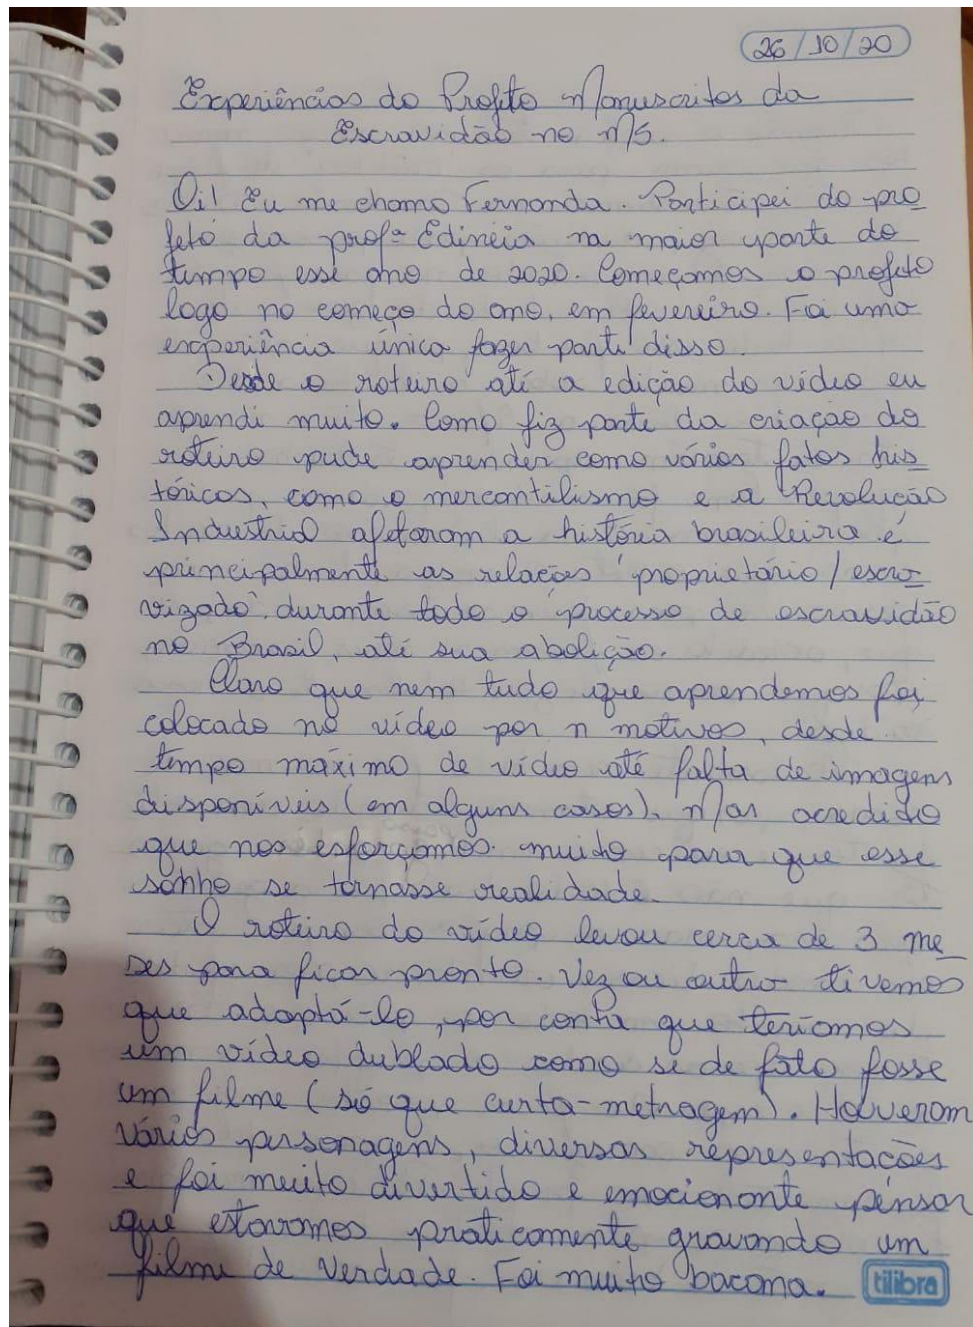 26/10/20
Experiências do Projeto Manuscritos da
Escravidão no MS.
Oi! Eu me chamo Fernanda. Participei do pro
jeto da profª Edineia na maior parte do
tempo esse ano de 2020. Começamos o projeto
logo no começo do ano, em fevereiro. Foi uma
experiência única fazer parte disso.
Desde o roteiro até a edição do vídeo eu
aprendi muito. Como fiz parte da criação do
roteiro pude aprender como vários fatos his
tóricos, como o mercantilismo e a Revolução
Industrial afetaram a história brasileira e
principalmente as relações "proprietário/escra
vizado" durante todo o processo de escravidão
no Brasil, até sua abolição.
Claro que nem tudo que aprendemos foi
colocado no vídeo por n motivos, desde
tempo máximo de vídeo até falta de imagens
disponíveis (em alguns casos). Mas acredito
que nos esforçamos muito para que esse
sonho se tornasse realidade.
O roteiro do vídeo levou cerca de 3 me
ses para ficar pronto. Vez ou outra tivemos
que adaptá-lo, por conta que teríamos
um vídeo dublado como se de fato fosse
um filme (só que curta-metragem). Houveram
vários personagens, diversas representações
e foi muito divertido e emocionante pensar
que estavamos praticamente gravando um
filme de verdade. Foi muito bacana.
tilibra